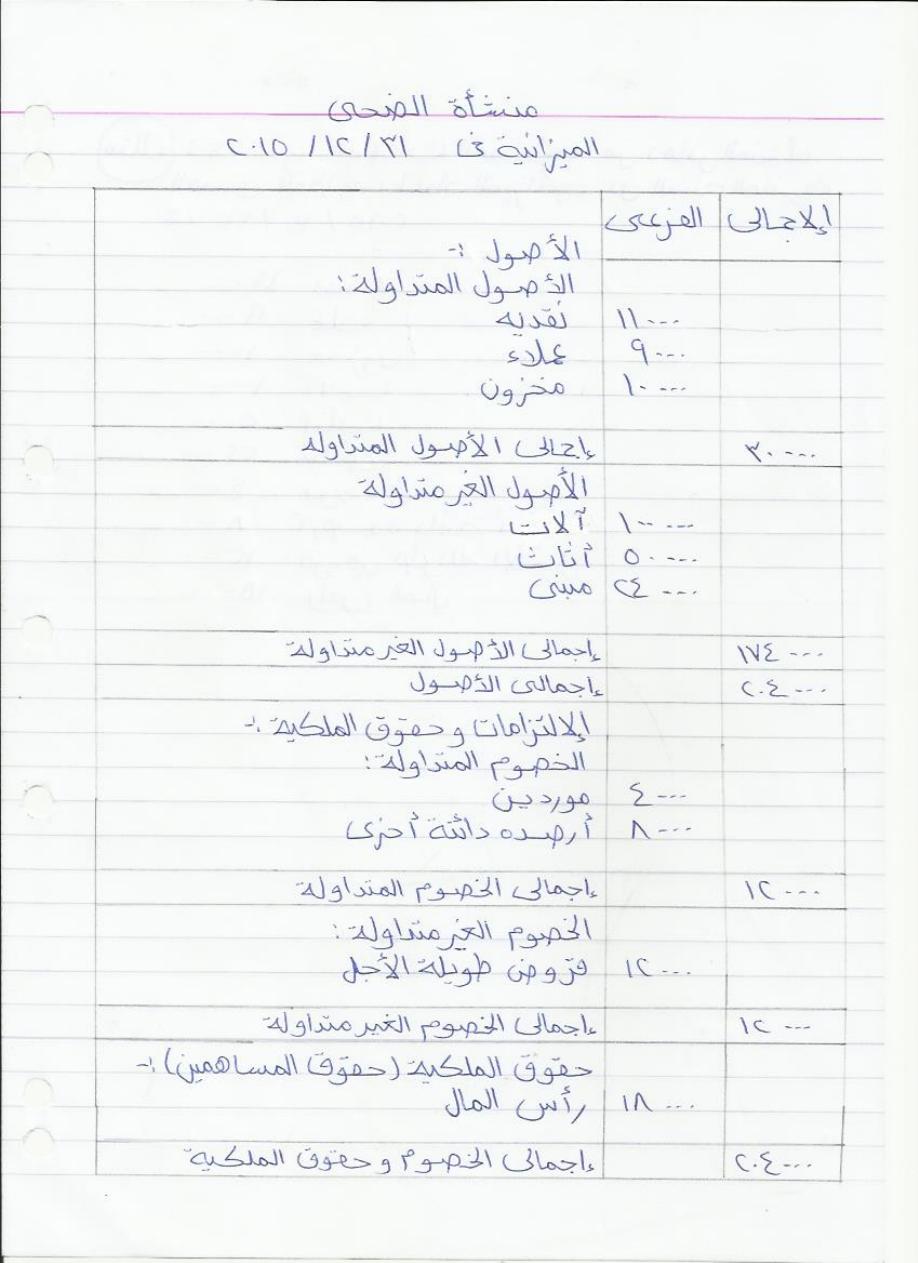 منشأة الضحى
الميزانية فى ٣١/١٢/٢٠١٥
الإجمالى الفرعى
الأصول :-
الأصول المتداولة:
١١٠٠٠ نقديه
٩٠٠٠ عملاء
١٠٠٠٠ مخزون
٣٠٠٠٠ إجمالى الأصول المتداولة
الأصول الغير متداولة
١٠٠٠٠٠ آلات
٥٠٠٠٠ أثاث
٢٤٠٠٠ مبنى
١٧٤٠٠٠ إجمالى الأصول الغير متداولة
٢٠٤٠٠٠ إجمالى الأصول
الالتزامات وحقوق الملكية :-
الخصوم المتداولة:
٤٠٠٠ موردين
٨٠٠٠ أرصده دائنة أخرى
١٢٠٠٠ إجمالى الخصوم المتداولة
الخصوم الغير متداولة :
١٢٠٠٠ قروض طويلة الأجل
١٢٠٠٠ إجمالى الخصوم الغير متداولة
حقوق الملكية (حقوق المساهمين) :-
١٨٠٠٠ رأس المال
٢٠٤٠٠٠ إجمالى الخصوم وحقوق الملكية